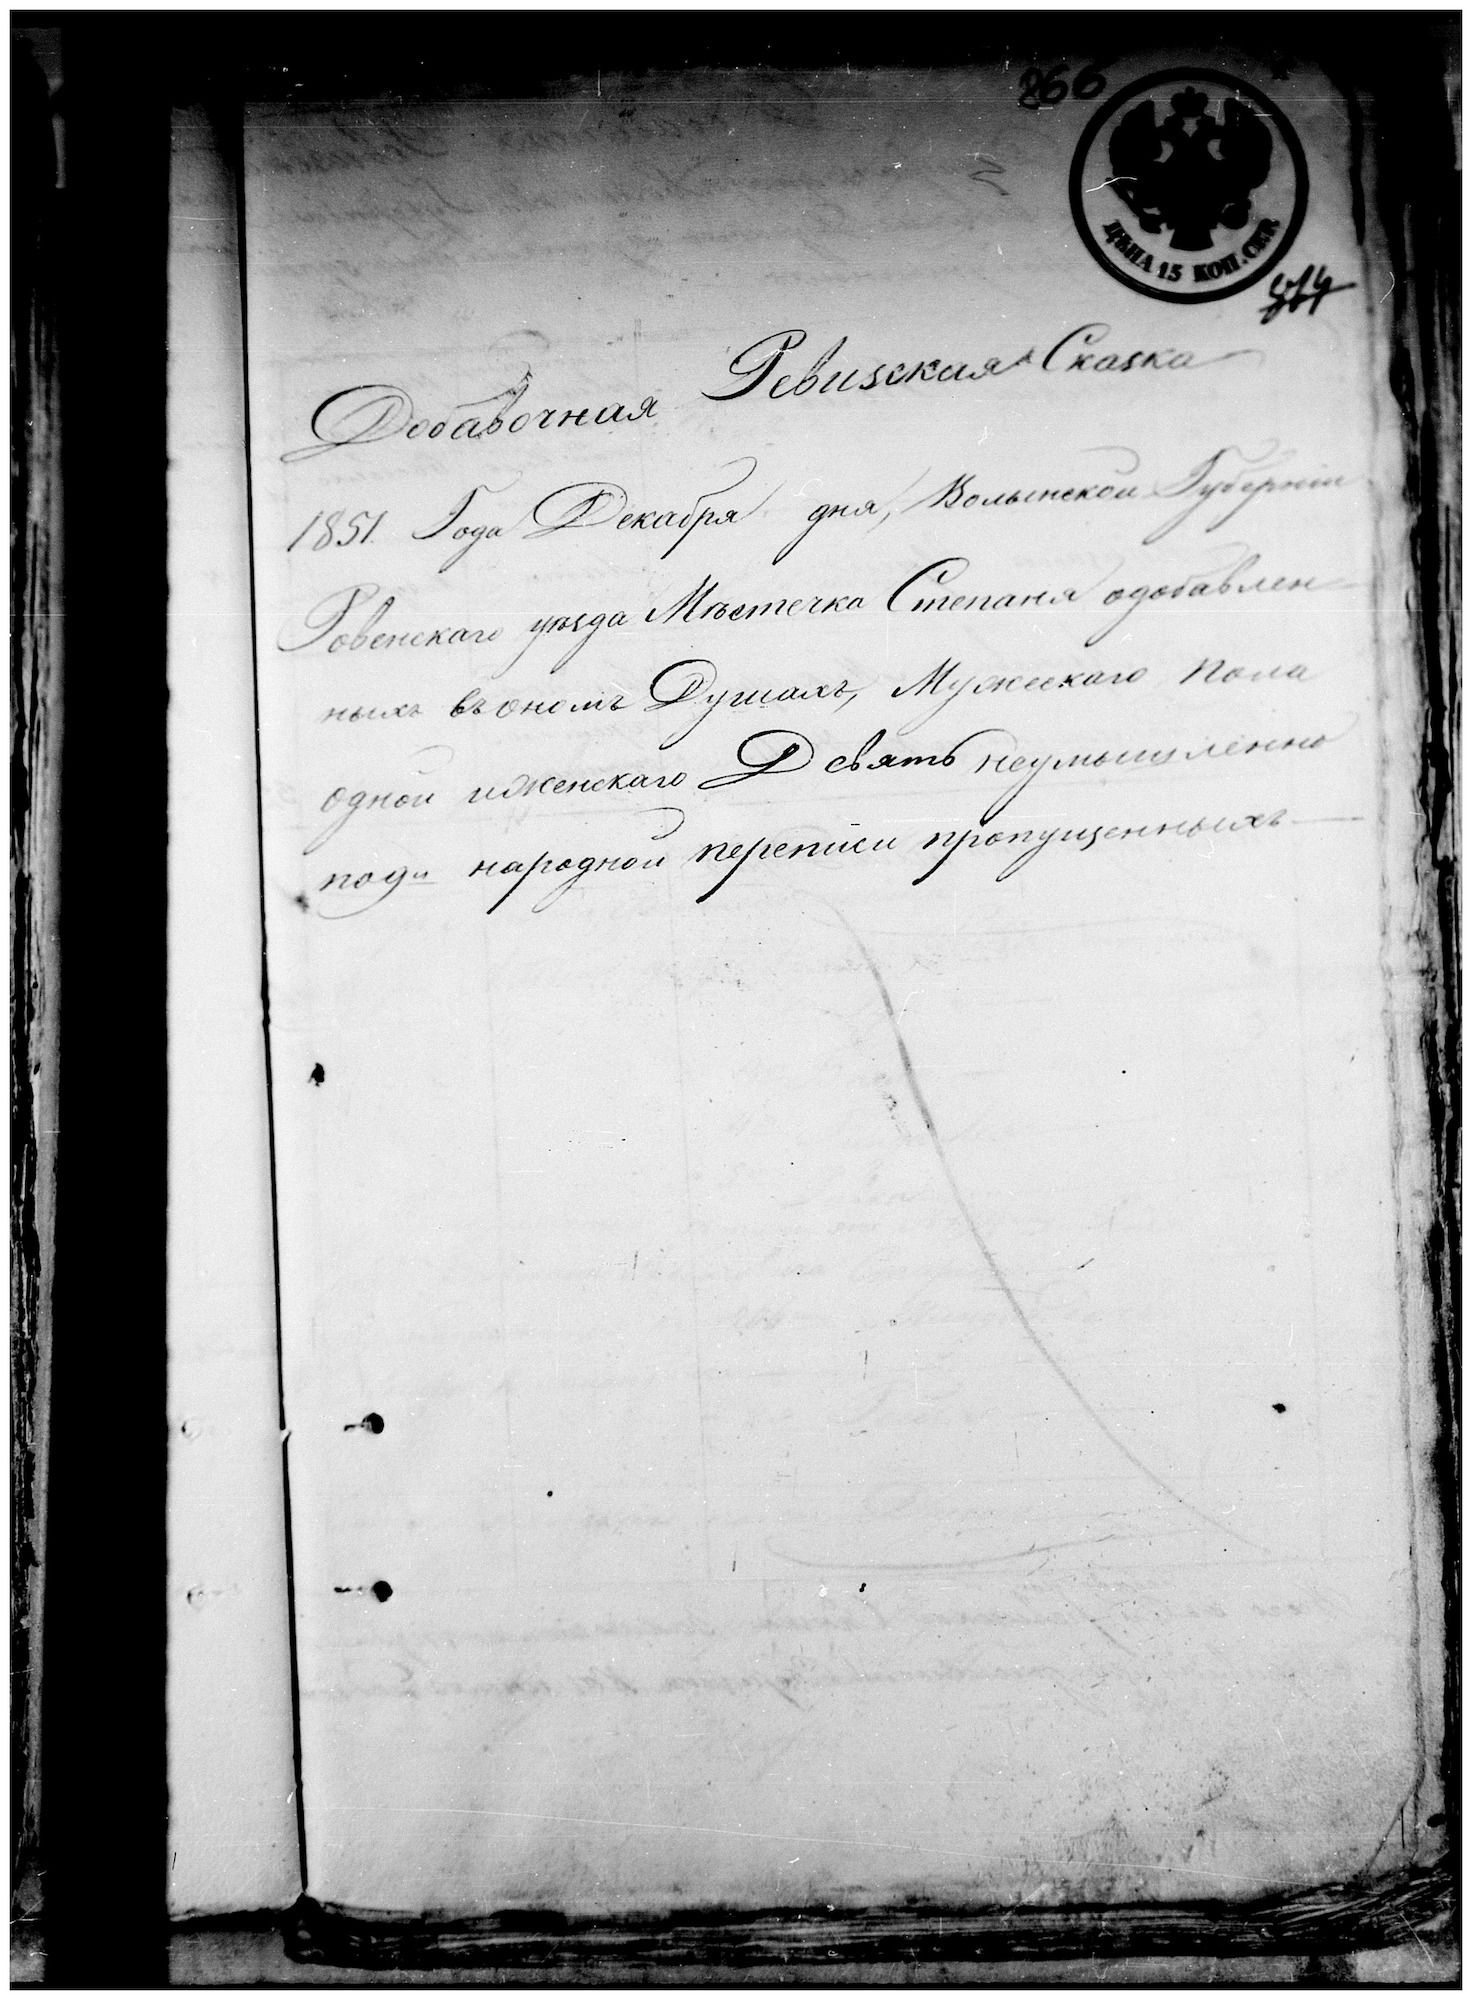 266
ЦѢНА 15 КОП. СЕР.
Добавочная Ревизская Сказка
1851 Года Декабря дня, Волынской Губерніи
Ровенскаго уѣзда Мѣстечка Степаня одобавлен
ныхъ въ ономъ Душахъ, Мужескаго пола
одной иженскаго Девять неумышленно
народной переписи пропущенныхъ